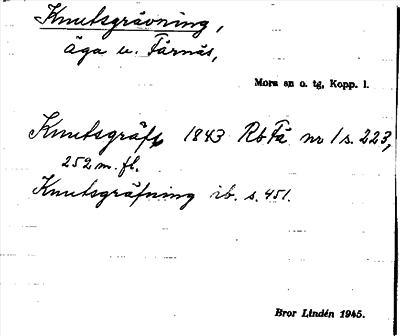 Knutsgrävning,
äga u. Färnäs,
Mora sn o. tg, Kopp. l.
Knutsgräft 1843 Rb Fä nr 1 s. 223,
252 m. fl.
Knutsgräfning ib. s. 451.
Bror Lindén 1945.